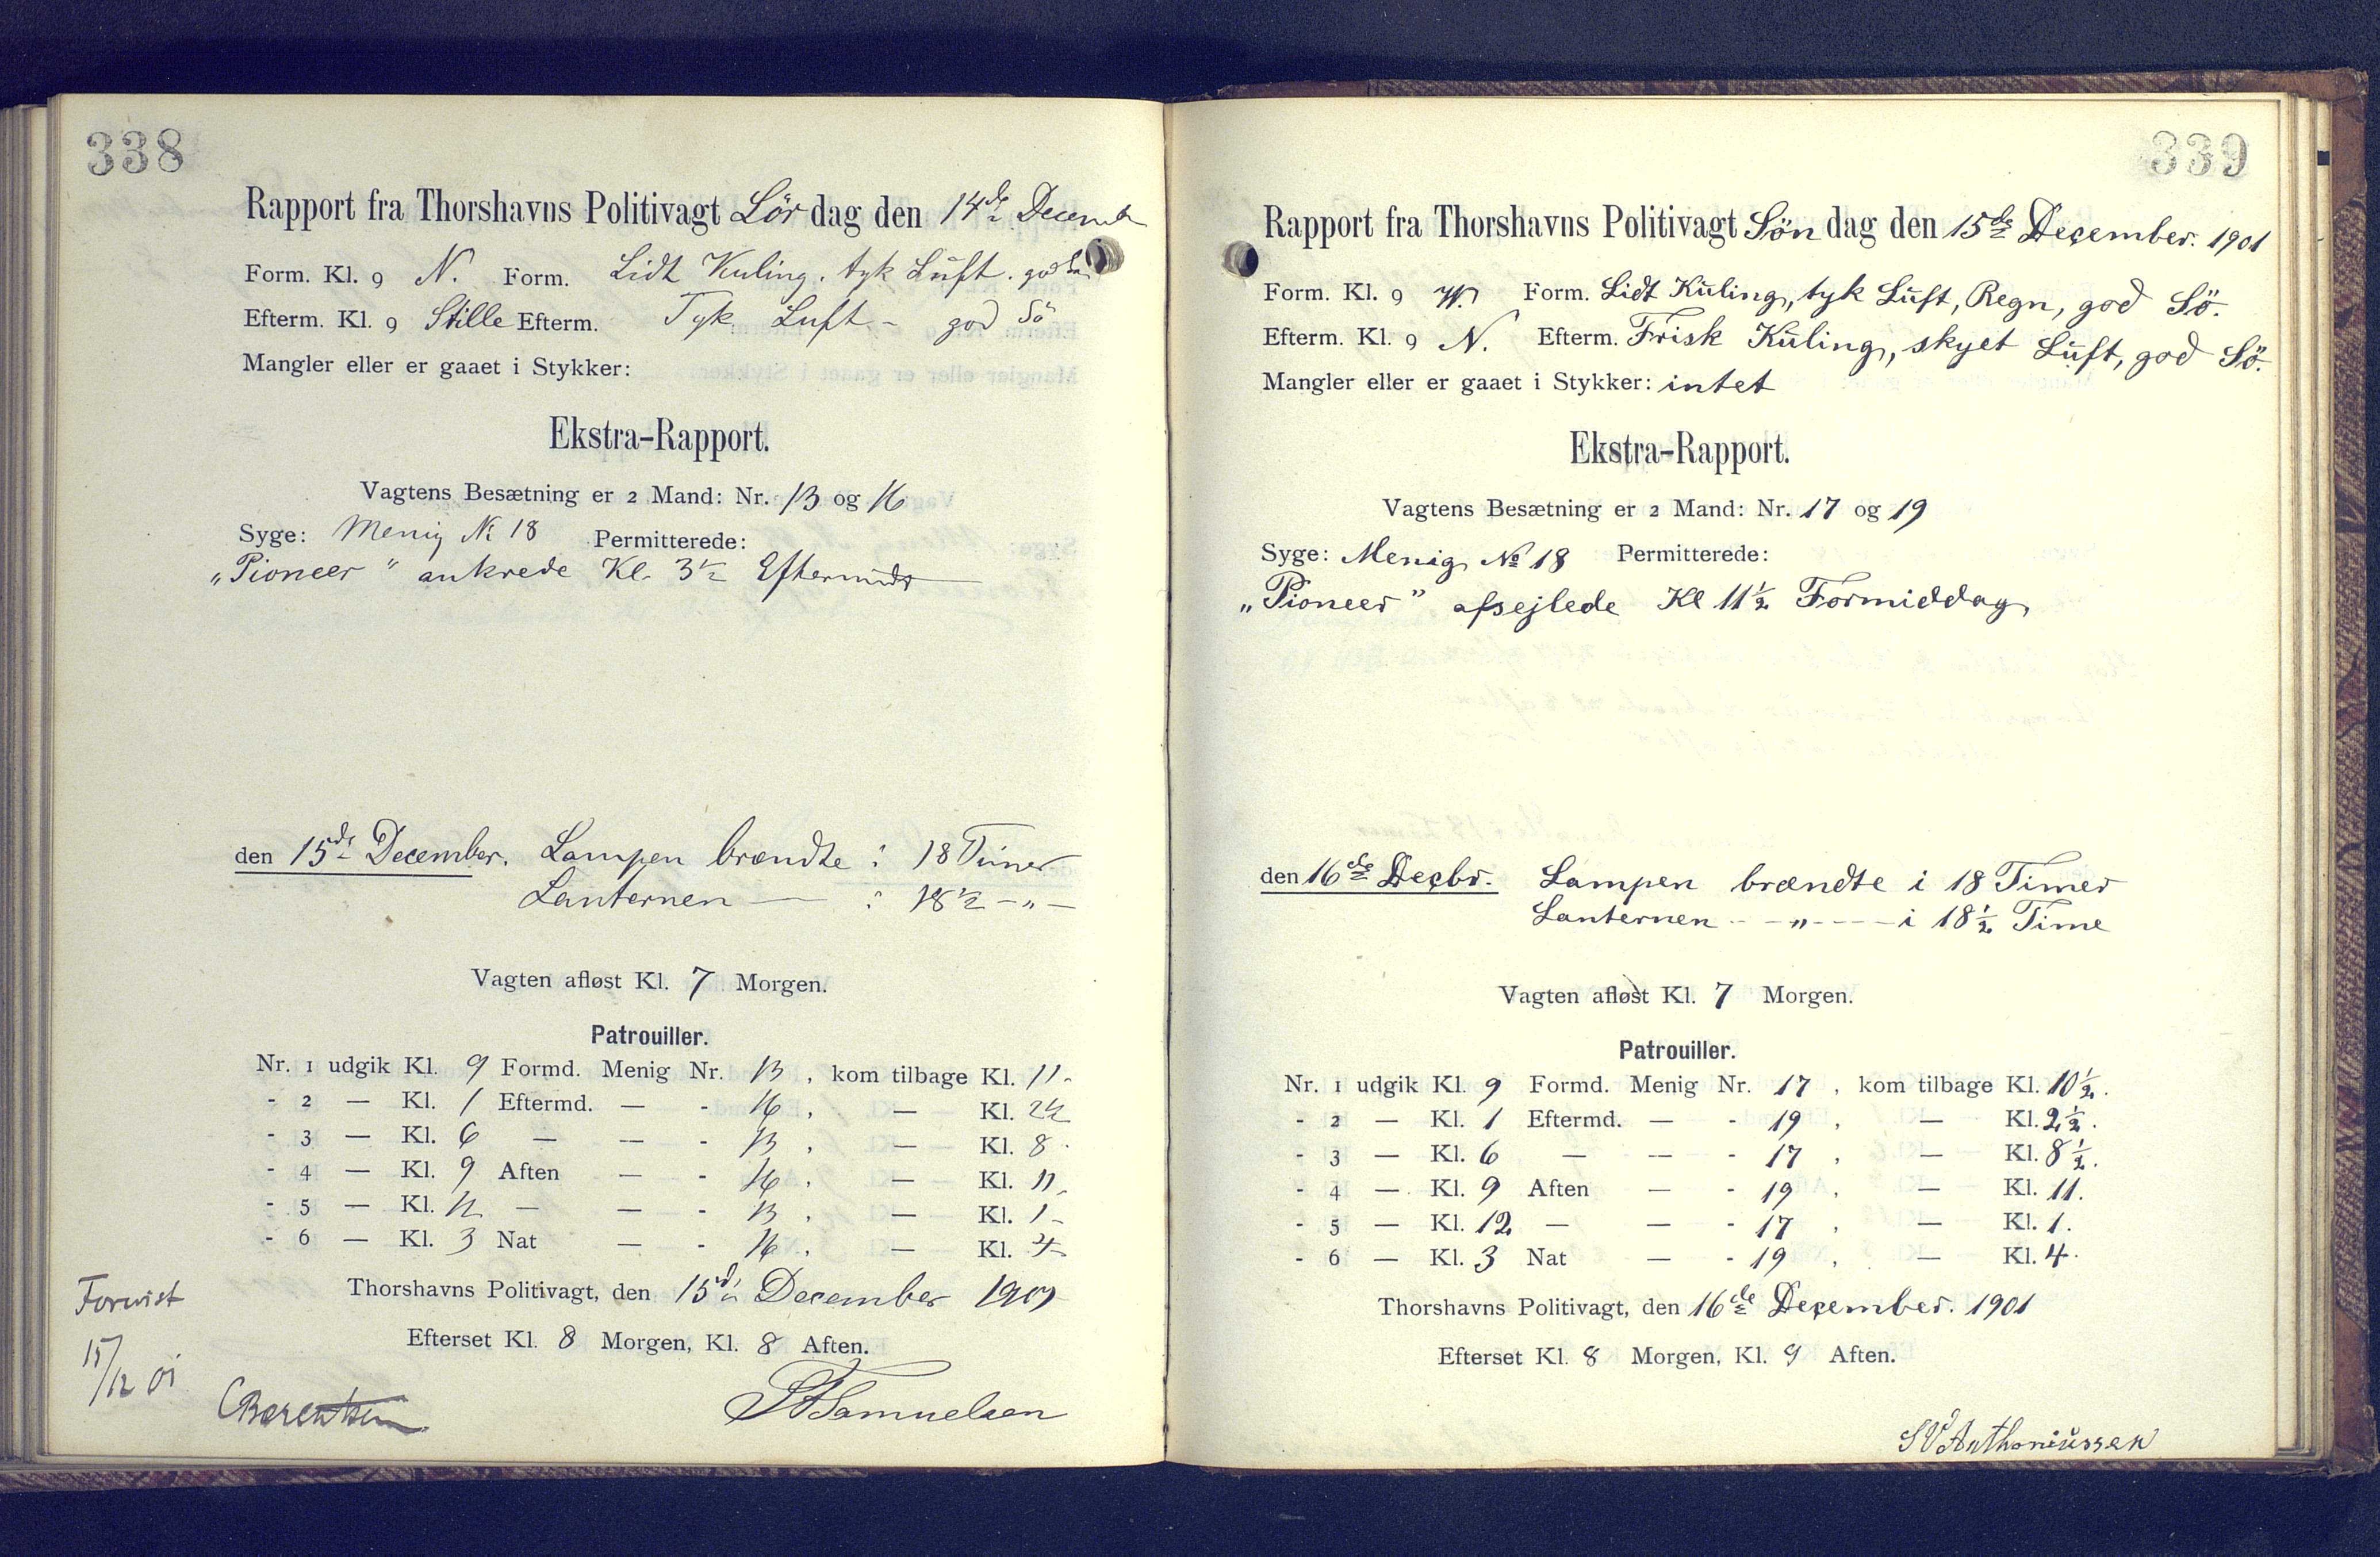 338
Rapport fra Thorshavns Politivagt Lör dag den 14de Decemb
Form. Kl. 9 N. Form. Lidt Kuling. tyk Luft. god Sö
Efterm. Kl. 9 Stille Efterm. Tyk Luft - god Sö
Mangler eller er gaaet i Stykker:
Ekstra-Rapport.
Vagtens Besætning er 2 Mand: Nr. 13 og 16
Syge: Menig № 18 Permitterede:
„Pioneer" ankrede Kl. 3½ Eftermidg
den 15de December. Lampen brændte i 18 Timer
Lanternen — i 18½ -„-
Vagten afløst Kl. 7 Morgen.
Patrouiller.
Nr. 1 udgik Kl. 9 Formd. Menig Nr. 13, kom tilbage Kl. 11.
- 2 — Kl. 1 Eftermd. — - 16, — Kl. 2½
- 3 — Kl. 6 — — - 13, — Kl. 8.
- 4 — Kl. 9 Aften — - 16, — Kl. 11.
- 5 — Kl. 12 — — - 13, — Kl. 1-
- 6 — Kl. 3 Nat — - 16, — Kl. 4-
Thorshavns Politivagt, den 15de December 1901
Efterset Kl. 8 Morgen, Kl. 8 Aften.
Forevist
15/12 01
CBærentsen
Samuelsen
339
Rapport fra Thorshavns Politivagt Sön dag den 15de December. 1901
Form. Kl. 9 W. Form. Lidt Kŭling, tyk Lŭft, Regn, god Sö.
Efterm. Kl. 9 N. Efterm. Frisk Kŭling, skyet Lŭft, god Sö.
Mangler eller er gaaet i Stykker: intet
Ekstra-Rapport.
Vagtens Besætning er 2 Mand: Nr. 17 og 19
Syge: Menig № 18 Permitterede:
„Pioneer" afsejlede Kl 11½ Formiddag,
den 16de Decbr. Lampen brændte i 18 Timer
Lanternen - -„- - - - i 18½ Time
Vagten afløst Kl. 7 Morgen.
Patrouiller.
Nr. 1 udgik Kl. 9 Formd. Menig Nr. 17, kom tilbage Kl. 10½.
- 2 — Kl. 1 Eftermd. — - 19, — Kl. 2½.
- 3 — Kl. 6 — — - 17, — Kl. 8½.
- 4 — Kl. 9 Aften — - 19, — Kl. 11.
- 5 — Kl. 12 — — - 17, — Kl. 1.
- 6 — Kl. 3 Nat — - 19, — Kl. 4.
Thorshavns Politivagt, den 16de December. 1901
Efterset Kl. 8 Morgen, Kl. 9 Aften.
SVAnthoniŭssen